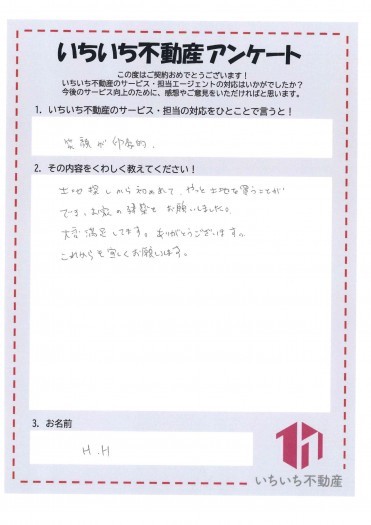 いちいち不動産アンケート
この度はご契約おめでとうございます！
いちいち不動産のサービス・担当エージェントの対応はいかがでしたか？
今後のサービス向上のために、感想やご意見をいただければと思います。
1. いちいち不動産のサービス・担当の対応をひとことで言うと！
笑顔が印象的。
2. その内容をくわしく教えてください！
土地探しから初めて、やっと土地を買うことが
でき、お家の建築をお願いしました。
大変満足してます。ありがとうございます。
これからも宜しくお願いします。
3. お名前
H.H
いちいち不動産